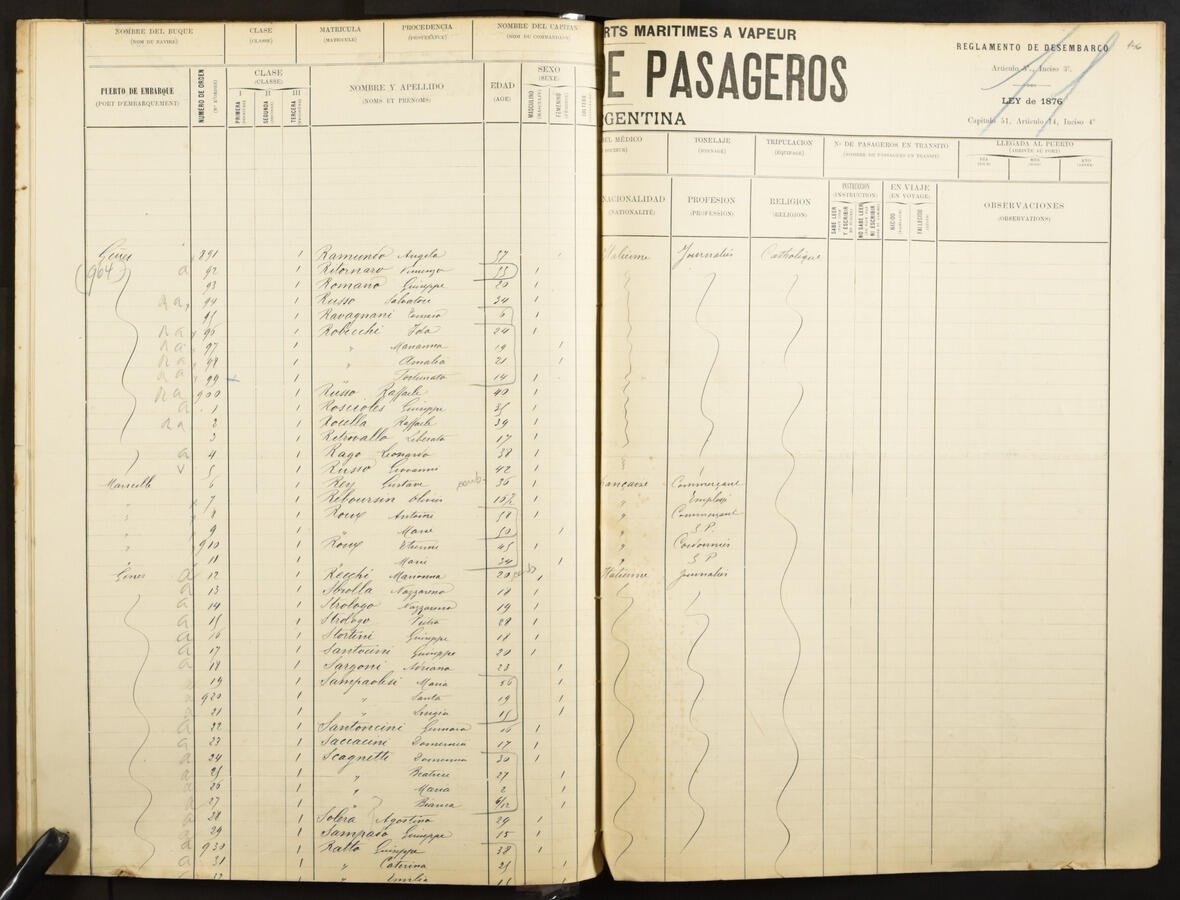 NOMBRE DEL BUQUE
(NOM DU NAVIRE)
CLASE
(CLASSE)
MATRICULA
(MATRICULE)
PROCEDENCIA
(PROVENANCE)
NOMBRE DEL CAPITAN
(NOM DU COMMANDANT)
PUERTO DE EMBARQUE
(PORT D'EMBARQUEMENT)
NÚMERO DE ORDEN
CLASE
(CLASSE)
I II III
PRIMERA SEGUNDA TERCERA
NOMBRE Y APELLIDO
(NOMS ET PRÉNOMS)
EDAD
(AGE)
SEXO
(SEXE)
MASCULINO
FEMENINO
RTS MARITIMES A VAPEUR
E PASAGEROS
GENTINA
REGLAMENTO DE DESEMBARCO
Artículo 5°, Inciso 3°.
LEY de 1876
Capítulo 51, Artículo 14, Inciso 4°
DEL MÉDICO
TONELAJE
TRIPULACION
(EQUIPAGE)
N° DE PASAGEROS EN TRANSITO
(NOMBRE DE PASSAGERS EN TRANSIT)
LLEGADA AL PUERTO
(ARRIVÉE AU PORT)
DIA MES AÑO
NACIONALIDAD
(NATIONALITÉ)
PROFESION
(PROFESSION)
RELIGION
(RELIGION)
INSTRUCCION
(INSTRUCTION)
SABE LEER Y ESCRIBIR
NO SABE LEER NI ESCRIBIR
EN VIAJE
(EN VOYAGE)
NACIDO
FALLECIDO
OBSERVACIONES
(OBSERVATIONS)
Gênes 891 1 Ramundo Angela 57 Italienne Journalier Catholique
(904) a 92 1 Ritornaro Vincenzo 1
93 1 Romano Giuseppe 20 1
na 94 1 Russo Salvatore 34 1
95 1 Ravagnani 6 1
na 96 1 Robecchi Ida 24 1
na 97 1 " Marianna 19 1
na 98 1 " Amalia 21 1
na 99 1 Fortunato 14 1
na 900 1 Russo Raffaele 40 1
a 1 1 Giuseppe 35 1
na 2 1 Rocella Raffaele 39 1
3 1 Liberato 17 1
a 4 1 Rago Leonardo 38 1
v 5 1 Russo Giovanni 42 1
Marseille 6 1 Rey Gustave 36 1 Française Commerçant
" 7 1 Reboursin Olivier 1 " Employé
" 8 1 Roux Antoine 58 1 " Commerçant
" 9 1 Marie 50 1 " S.P.
" 910 1 Roux Etienne 45 1 " Cordonnier
" 11 1 Marie 34 1 " S P
Gênes a 12 1 Recchi Marianna 20 1 Italienne Journalier
a 13 1 Nazzareno 18 1
a 14 1 Strologo Nazzareno 19 1
a 15 1 Strologo 28 1
a 16 1 Stortini Giuseppe 18 1
a 17 1 Giuseppe 20 1
a 18 1 Sargoni Adriana 23 1
19 1 Sampaolesi Maria 56 1
920 1 " Santa 19 1
21 1 " Luigia 15 1
a 22 1 Santoncini 16 1
a 23 1 Saccacini Domenica 17 1
a 24 1 Scagnetti 30 1
a 25 1 " Beatrice 27 1
a 26 1 " Maria 2 1
a 27 1 " Bianca 6/12 1
a 28 1 Solera Agostino 29 1
a 29 1 Giuseppe 15 1
a 930 1 Ratto Giuseppe 38 1
a 31 1 " Caterina 25 1
32 " Emilia